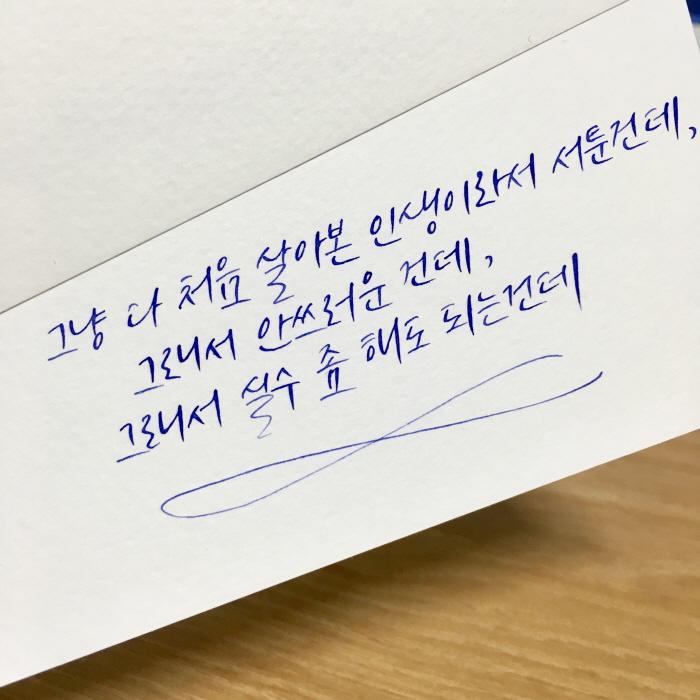 그냥 다 처음 살아본 인생이라서 서툰건데,
그래서 안쓰러운 건데,
그래서 실수 좀 해도 되는건데